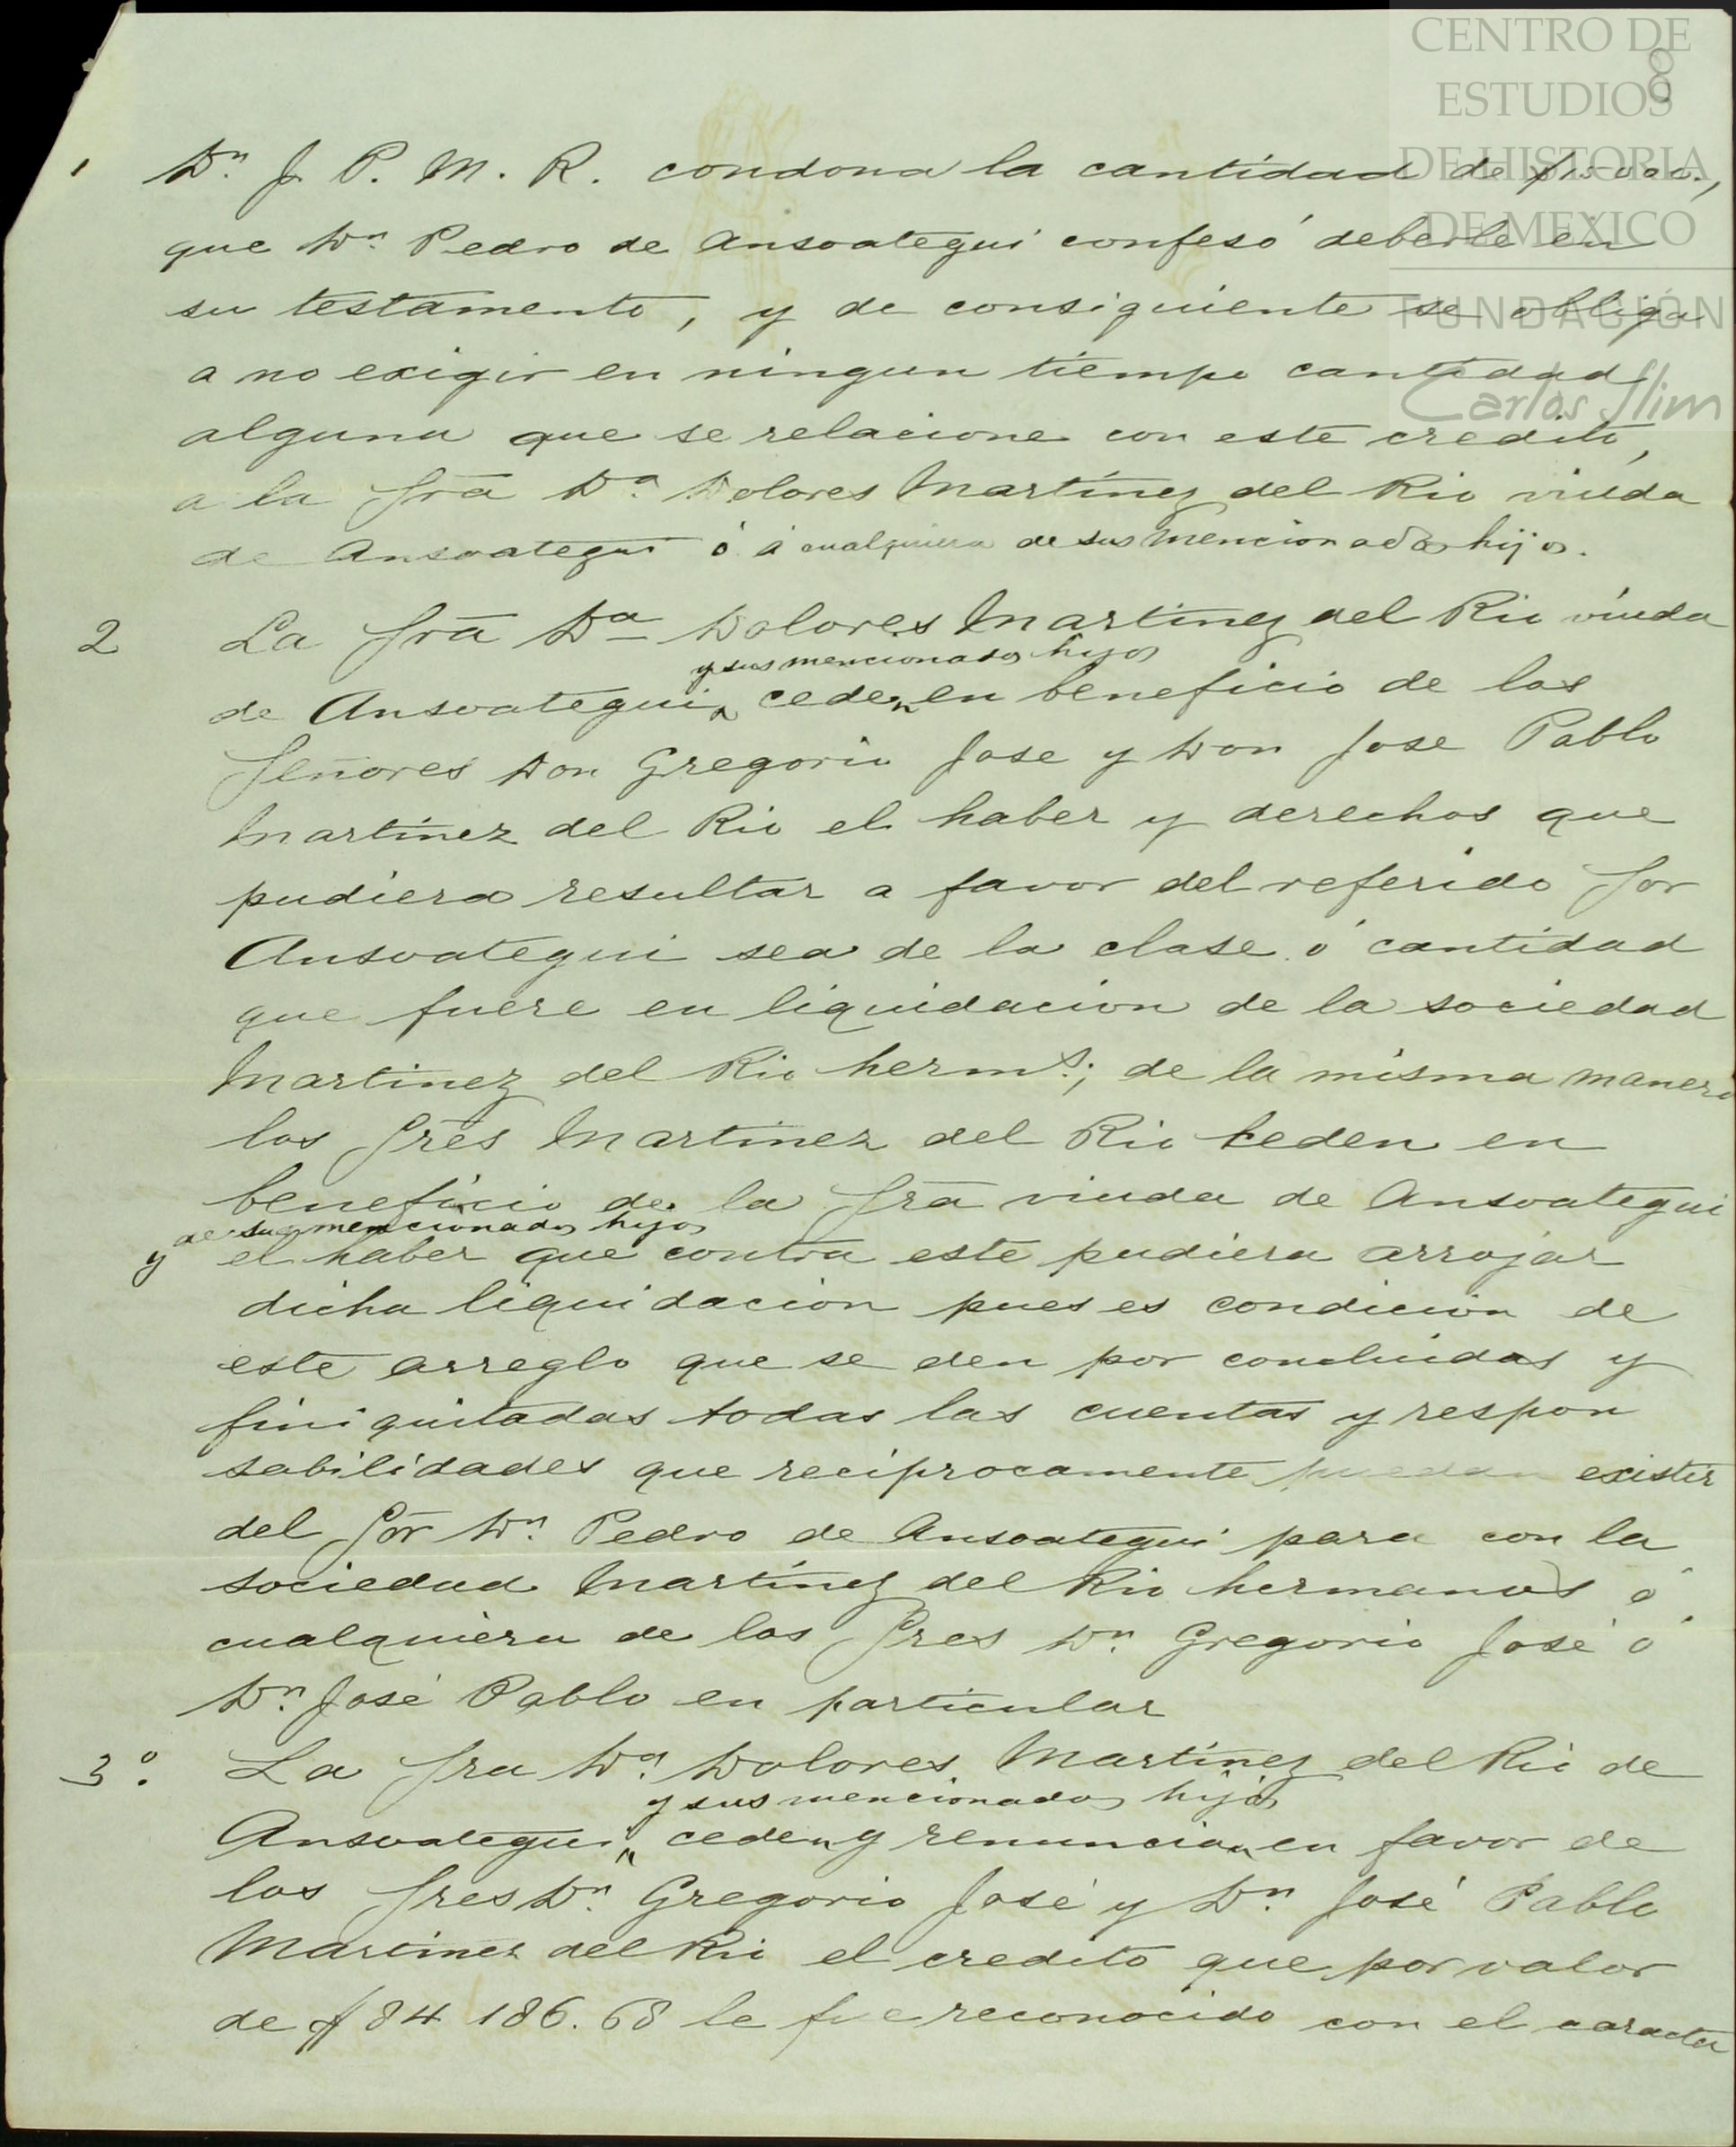 CENTRO DE
ESTUDIOS
DE HISTORIA
DE MEXICO
FUNDACIÓN
Carlos Slim
8
1 Dn. J. P. M. R. condona la cantidad de $15000.,
que Dn. Pedro de Ansoategui confesó deberle en
su testamento, y de consiguiente se obliga
a no exigir en ningun tiempo cantidad
alguna que se relacione con este credito,
a la Sra Da. Dolores Martínez del Rio viuda
de Ansoategui ó á cualquiera de sus mencionados hijos.
2 La Sra Da Dolores Martinez del Rio viuda
y sus mencionados hijos
de Ansoategui, ceden en beneficio de los
Señores Don Gregorio Jose y Don Jose Pablo
Martínez del Rio el haber y derechos que
pudiera resultar a favor del referido Sor
Ansoategui sea de la clase ó cantidad
que fuere en liquidacion de la sociedad
Martinez del Rio hermos.; de la misma manera
los Sres Martinez del Rio ceden en
beneficio de la Sra viuda de Ansoategui
y de sus mencionados hijos
el haber que contra este pudiera arrojar
dicha liquidacion pues es condicion de
este arreglo que se den por concluidas y
finiquitadas todas las cuentas y respon
sabilidades que reciprocamente puedan existir
del Sor Dn. Pedro de Ansoategui para con la
sociedad Martínez del Rio hermanos ó
cualquiera de los Sres Dn. Gregorio José ó
Dn. José Pablo en particular
3º. La Sra Da. Dolores Martínez del Rio de
y sus mencionados hijos
Ansoategui, ceden y renuncian en favor de
los Sres Dn. Gregorio José y Dn. José Pablo
Martinez del Rio el credito que por valor
de $84 186.68 le fue reconocido con el caracter